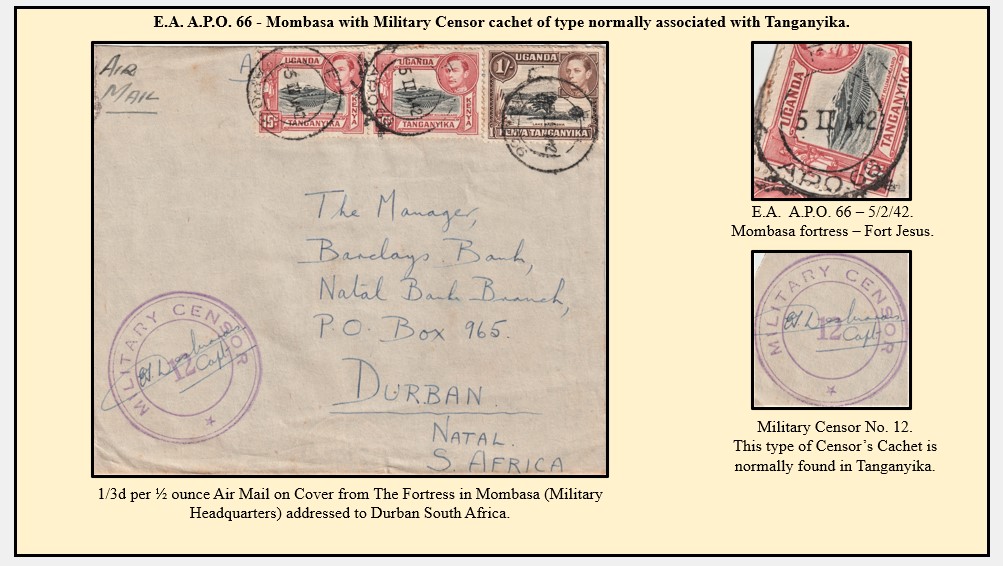 E.A. A.P.O. 66 - Mombasa with Military Censor cachet of type normally associated with Tanganyika.
AIR
MAIL
UGANDA
KENYA
TANGANYIKA
15c
5 II 42
A.P.O. 66
UGANDA
KENYA
TANGANYIKA
5 II 42
A.P.O. 66
UGANDA
1/-
KENYA TANGANYIKA
66
The Manager,
Barclays Bank,
Natal Bank Branch,
P.O. Box 965.
DURBAN
NATAL.
S. AFRICA
MILITARY CENSOR
12
Capt
1/3d per ½ ounce Air Mail on Cover from The Fortress in Mombasa (Military
Headquarters) addressed to Durban South Africa.
UGANDA
TANGANYIKA
5 II 42
A.P.O. 66
E.A.  A.P.O. 66 – 5/2/42.
Mombasa fortress – Fort Jesus.
MILITARY CENSOR
12
Capt
Military Censor No. 12.
This type of Censor's Cachet is
normally found in Tanganyika.